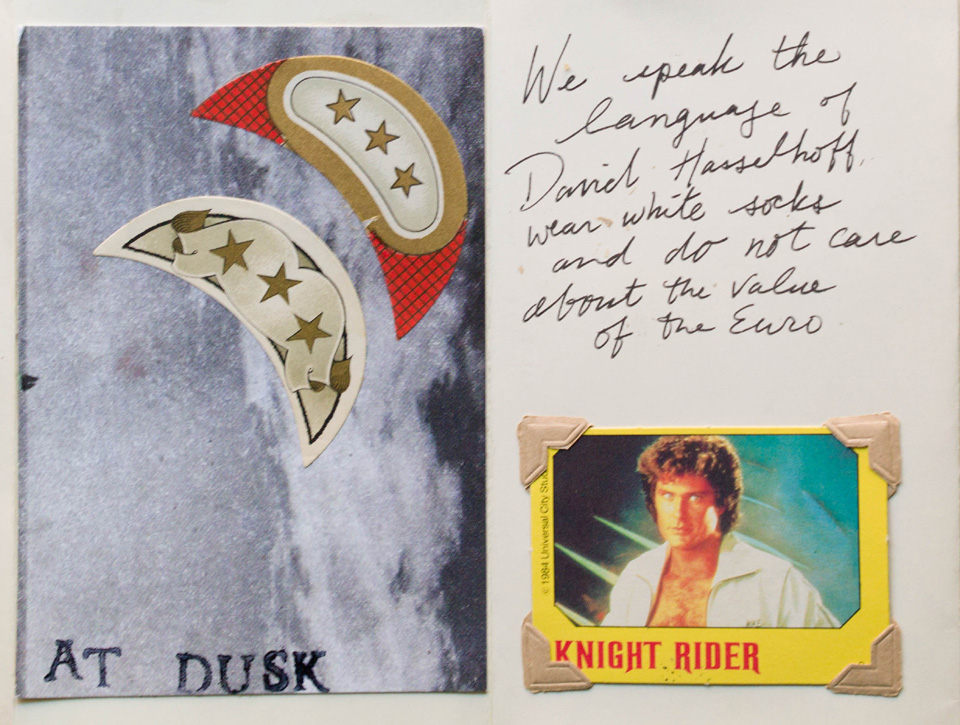 AT DUSK
We speak the
language of
David Hasselhoff,
wear white socks
and do not care
about the value
of the Euro
© 1984 Universal City Stu
KNIGHT RIDER